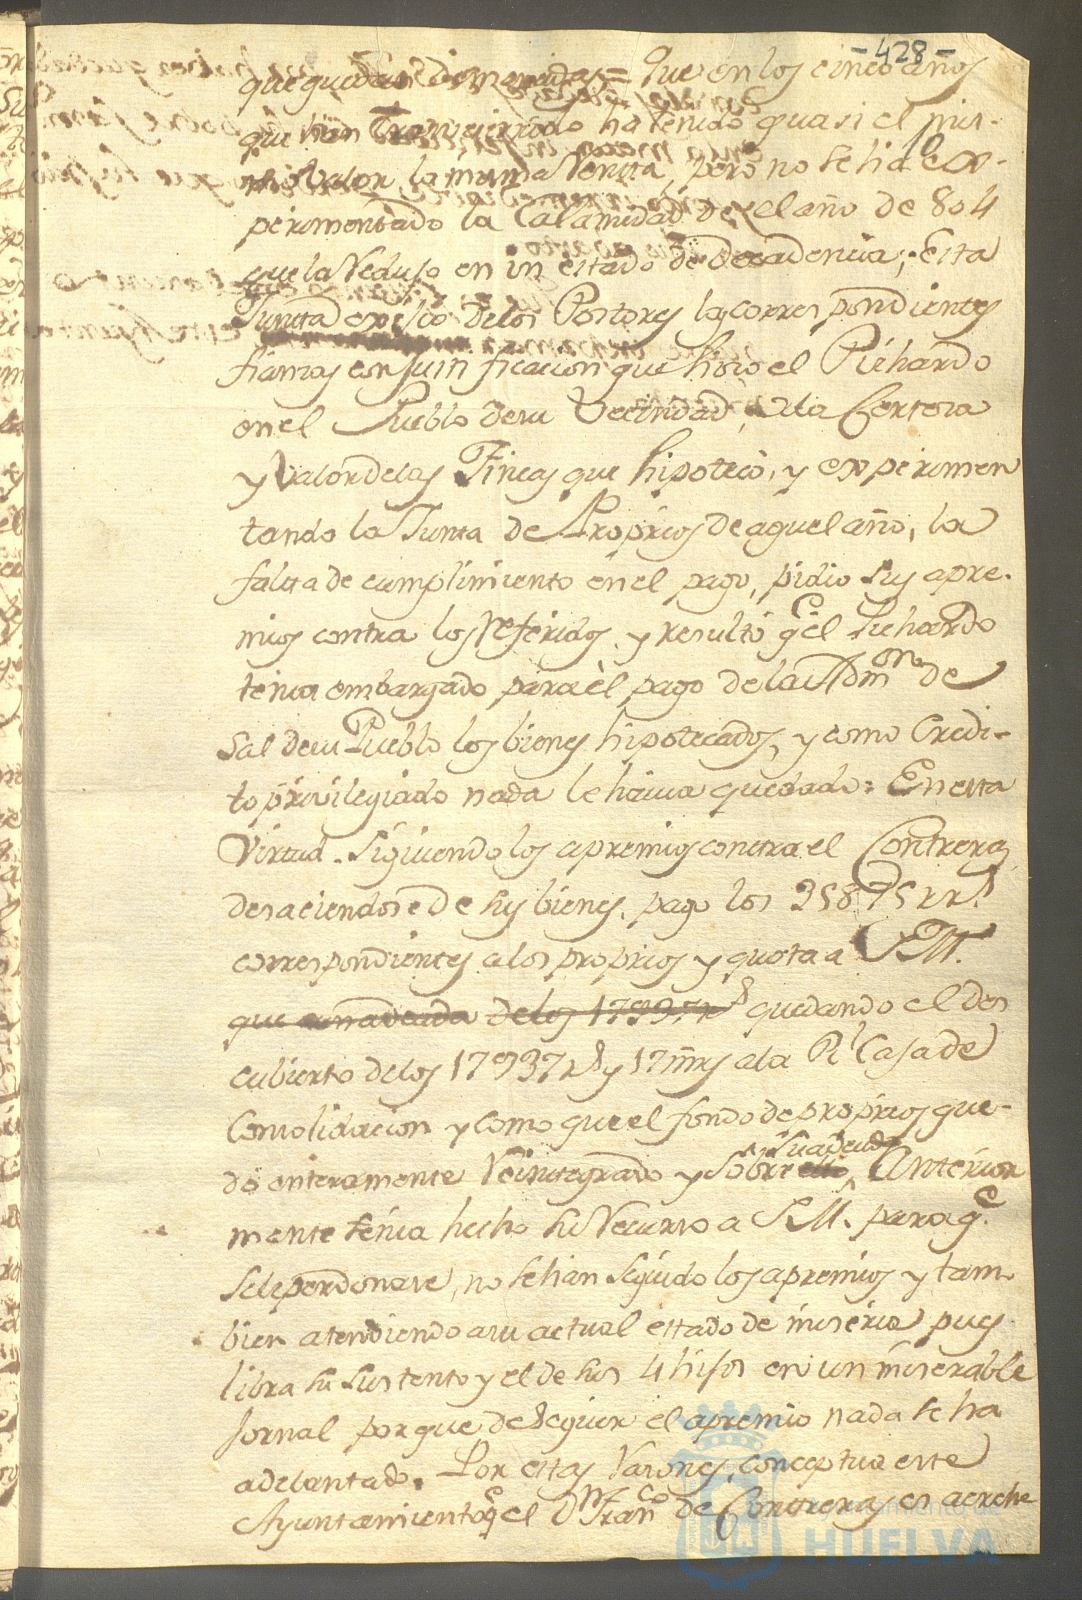 -428-
que quedan = Que en los cinco años
que han Transcurrido ha tenido quasi el mis-
mo Valor la misma Venta, pero no se ha ex-
perimentado la Calamidad de el año de 804
que la Redujo en un estado de decadencia; Esta
Junta exijio de los Postores las correspondientes
fianzas con justificacion que hizo el Pichardo
en el Pueblo de su Vecindad, de la Certeza
y Valor de las Fincas que hipotecó, y experimen
tando la Junta de Proprios de aquel año, la
falta de cumplimiento en el pago, pidio sus apre-
mios contra los Referidos, y resultó qe el Pichardo
tenia embargado para el pago de la Admon de
Sal de su Pueblo los bienes hipotecados, y como Credi-
to privilegiado nada le havia quedado: En esta
Virtud. Siguiendo los apremios contra el Contreras
desaciendose de sus bienes, pagó los 25895 rrs
correspondientes a los proprios y quota a S.M.
que delos 17937 rs quedando el des
cubierto de los 17937 rs y 17 mrs a la Rl Casa de
Consolidacion y como que el fondo de proprios que-
dó enteramente Reintegrado y sobre su adeudo Anterior
mente tenia hecho su Recurso a S.M. para qe
se le perdonase, no se han seguido los apremios y tam
bien atendiendo a su actual estado de miseria pues
libra su sustento y el de sus 4 hijos en un miserable
Jornal porque de seguir el apremio nada se ha
adelantado. Por estas Razones, conceptua este
Ayuntamiento qe el Dn Franco de Contreras es acrehe
Ayuntamiento de
HUELVA